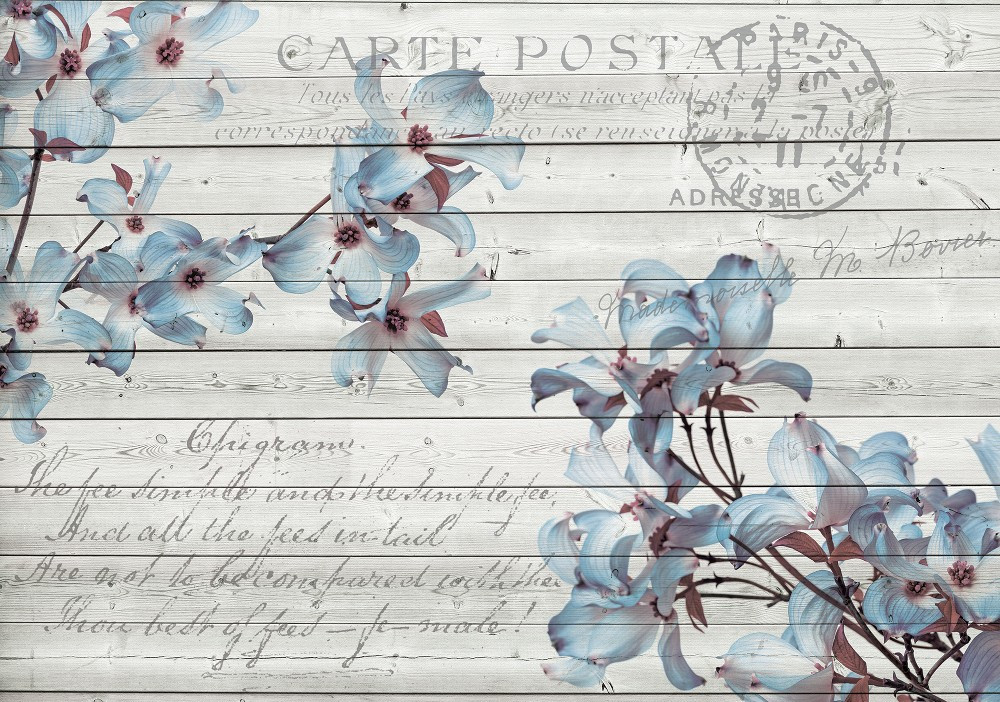 CARTE POSTALE
Tous les Pays étrangers n'acceptant pas la
correspondance au recto (se renseigner à la poste)
PARIS
ADRESSE
Mademoiselle M. Bovier
Epigram.
The fee simple and the simple fee
And all the fees in-tail
Are not to be compared with thee
Thou best of fees – fe-male!